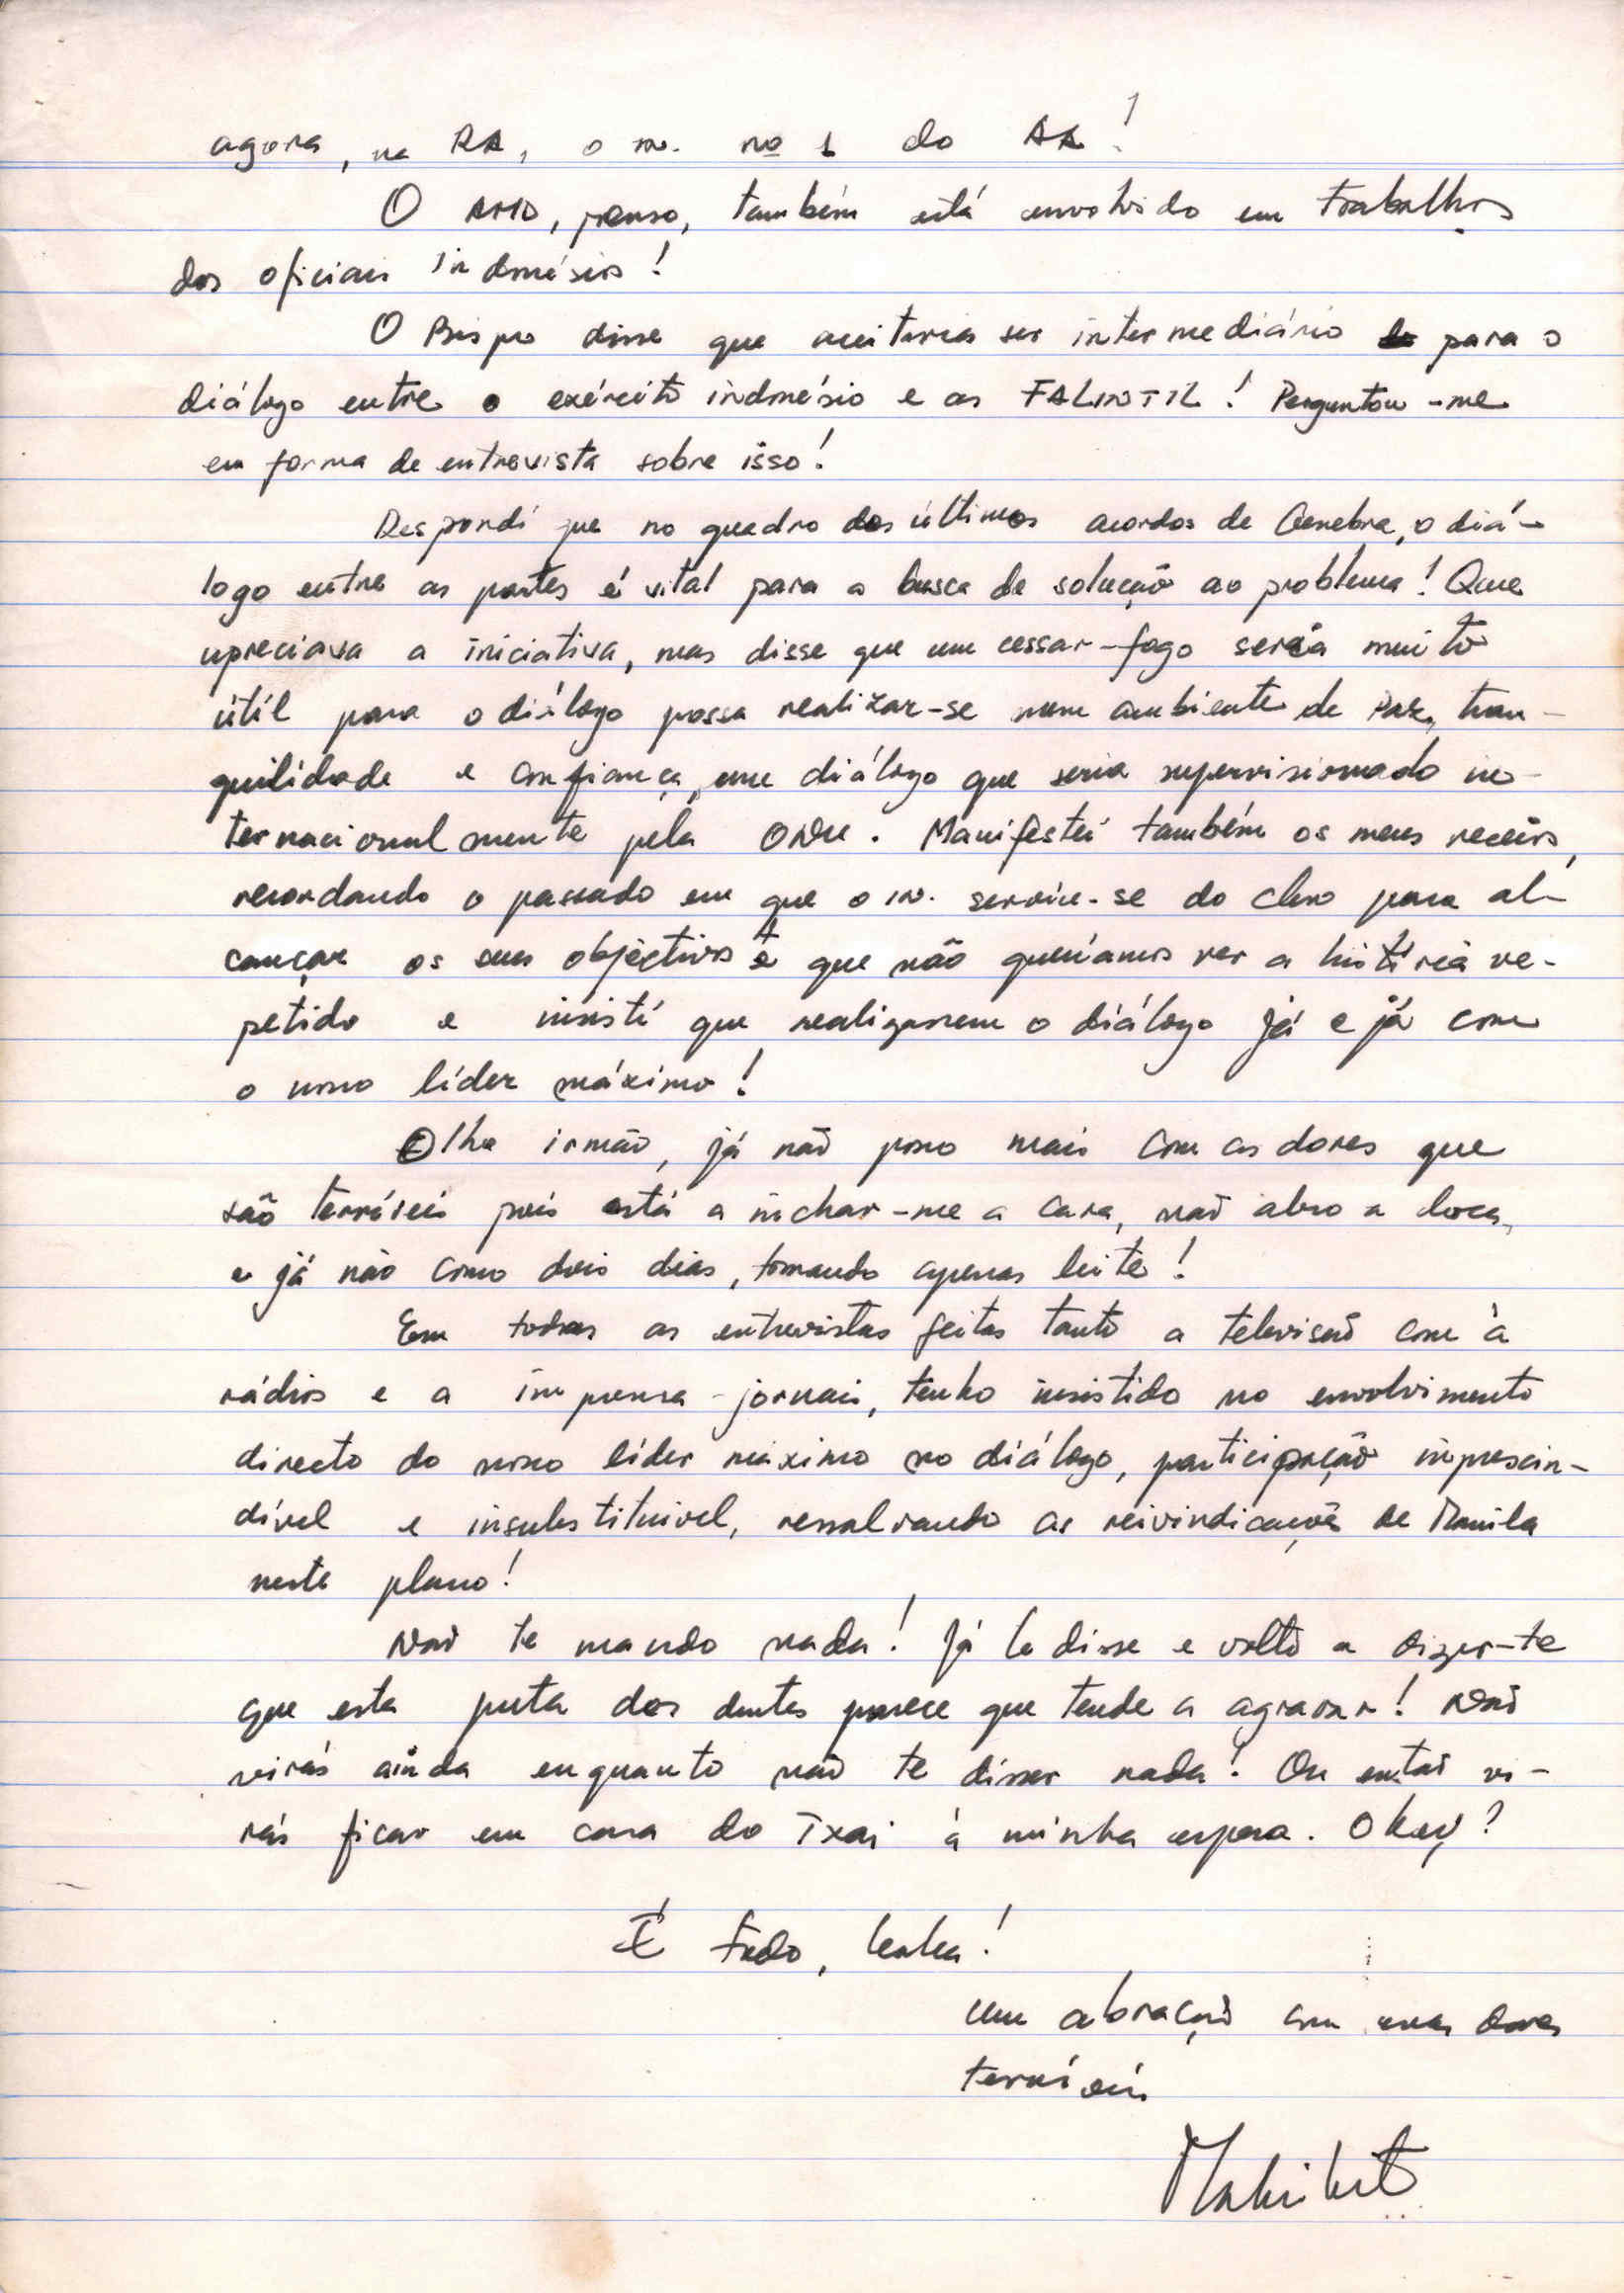 agora, na RA, o in. nº 1 do AR!
O AMD, penso, também está envolvido em trabalhos
dos oficiais indonésios!
O Bispo disse que aceitaria ser intermediário para o
diálogo entre o exército indonésio e as FALINTIL! Perguntou-me
em forma de entrevista sobre isso!
Respondi que no quadro dos últimos acordos de Genebra, o diá-
logo entre as partes é vital para a busca de solução ao problema! Que
apreciava a iniciativa, mas disse que um cessar-fogo seria muito
útil para o diálogo possa realizar-se num ambiente de Paz, tran-
quilidade e confiança, um diálogo que seria supervisionado in-
ternacionalmente pela ONU. Manifestei também os meus receios,
recordando o passado em que o in. serviu-se do clero para al-
cançar os seus objectivos e que não queríamos ver a história re-
petida e insisti que realizassem o diálogo já e já com
o nosso líder máximo!
Olha irmão, já não posso mais com as dores que
são terríveis pois está a inchar-me a cara, não abro a boca,
e já não como dois dias, tomando apenas leite!
Em todas as entrevistas feitas tanto a televisão com à
rádios e a imprensa-jornais, tenho insistido no envolvimento
directo do nosso líder máximo no diálogo, participação imprescin-
dível e insubstituivel, ressalvando as reivindicações de Manila
neste plano!
Não te mando nada! Já te disse e volto a dizer-te
que esta puta dos dentes parece que tende a agravar! Não
virás ainda enquanto não te disser nada! Ou então vi-
rás ficar em casa do Txai à minha espera. Okey?
É tudo,
um abração com dores
terríveis